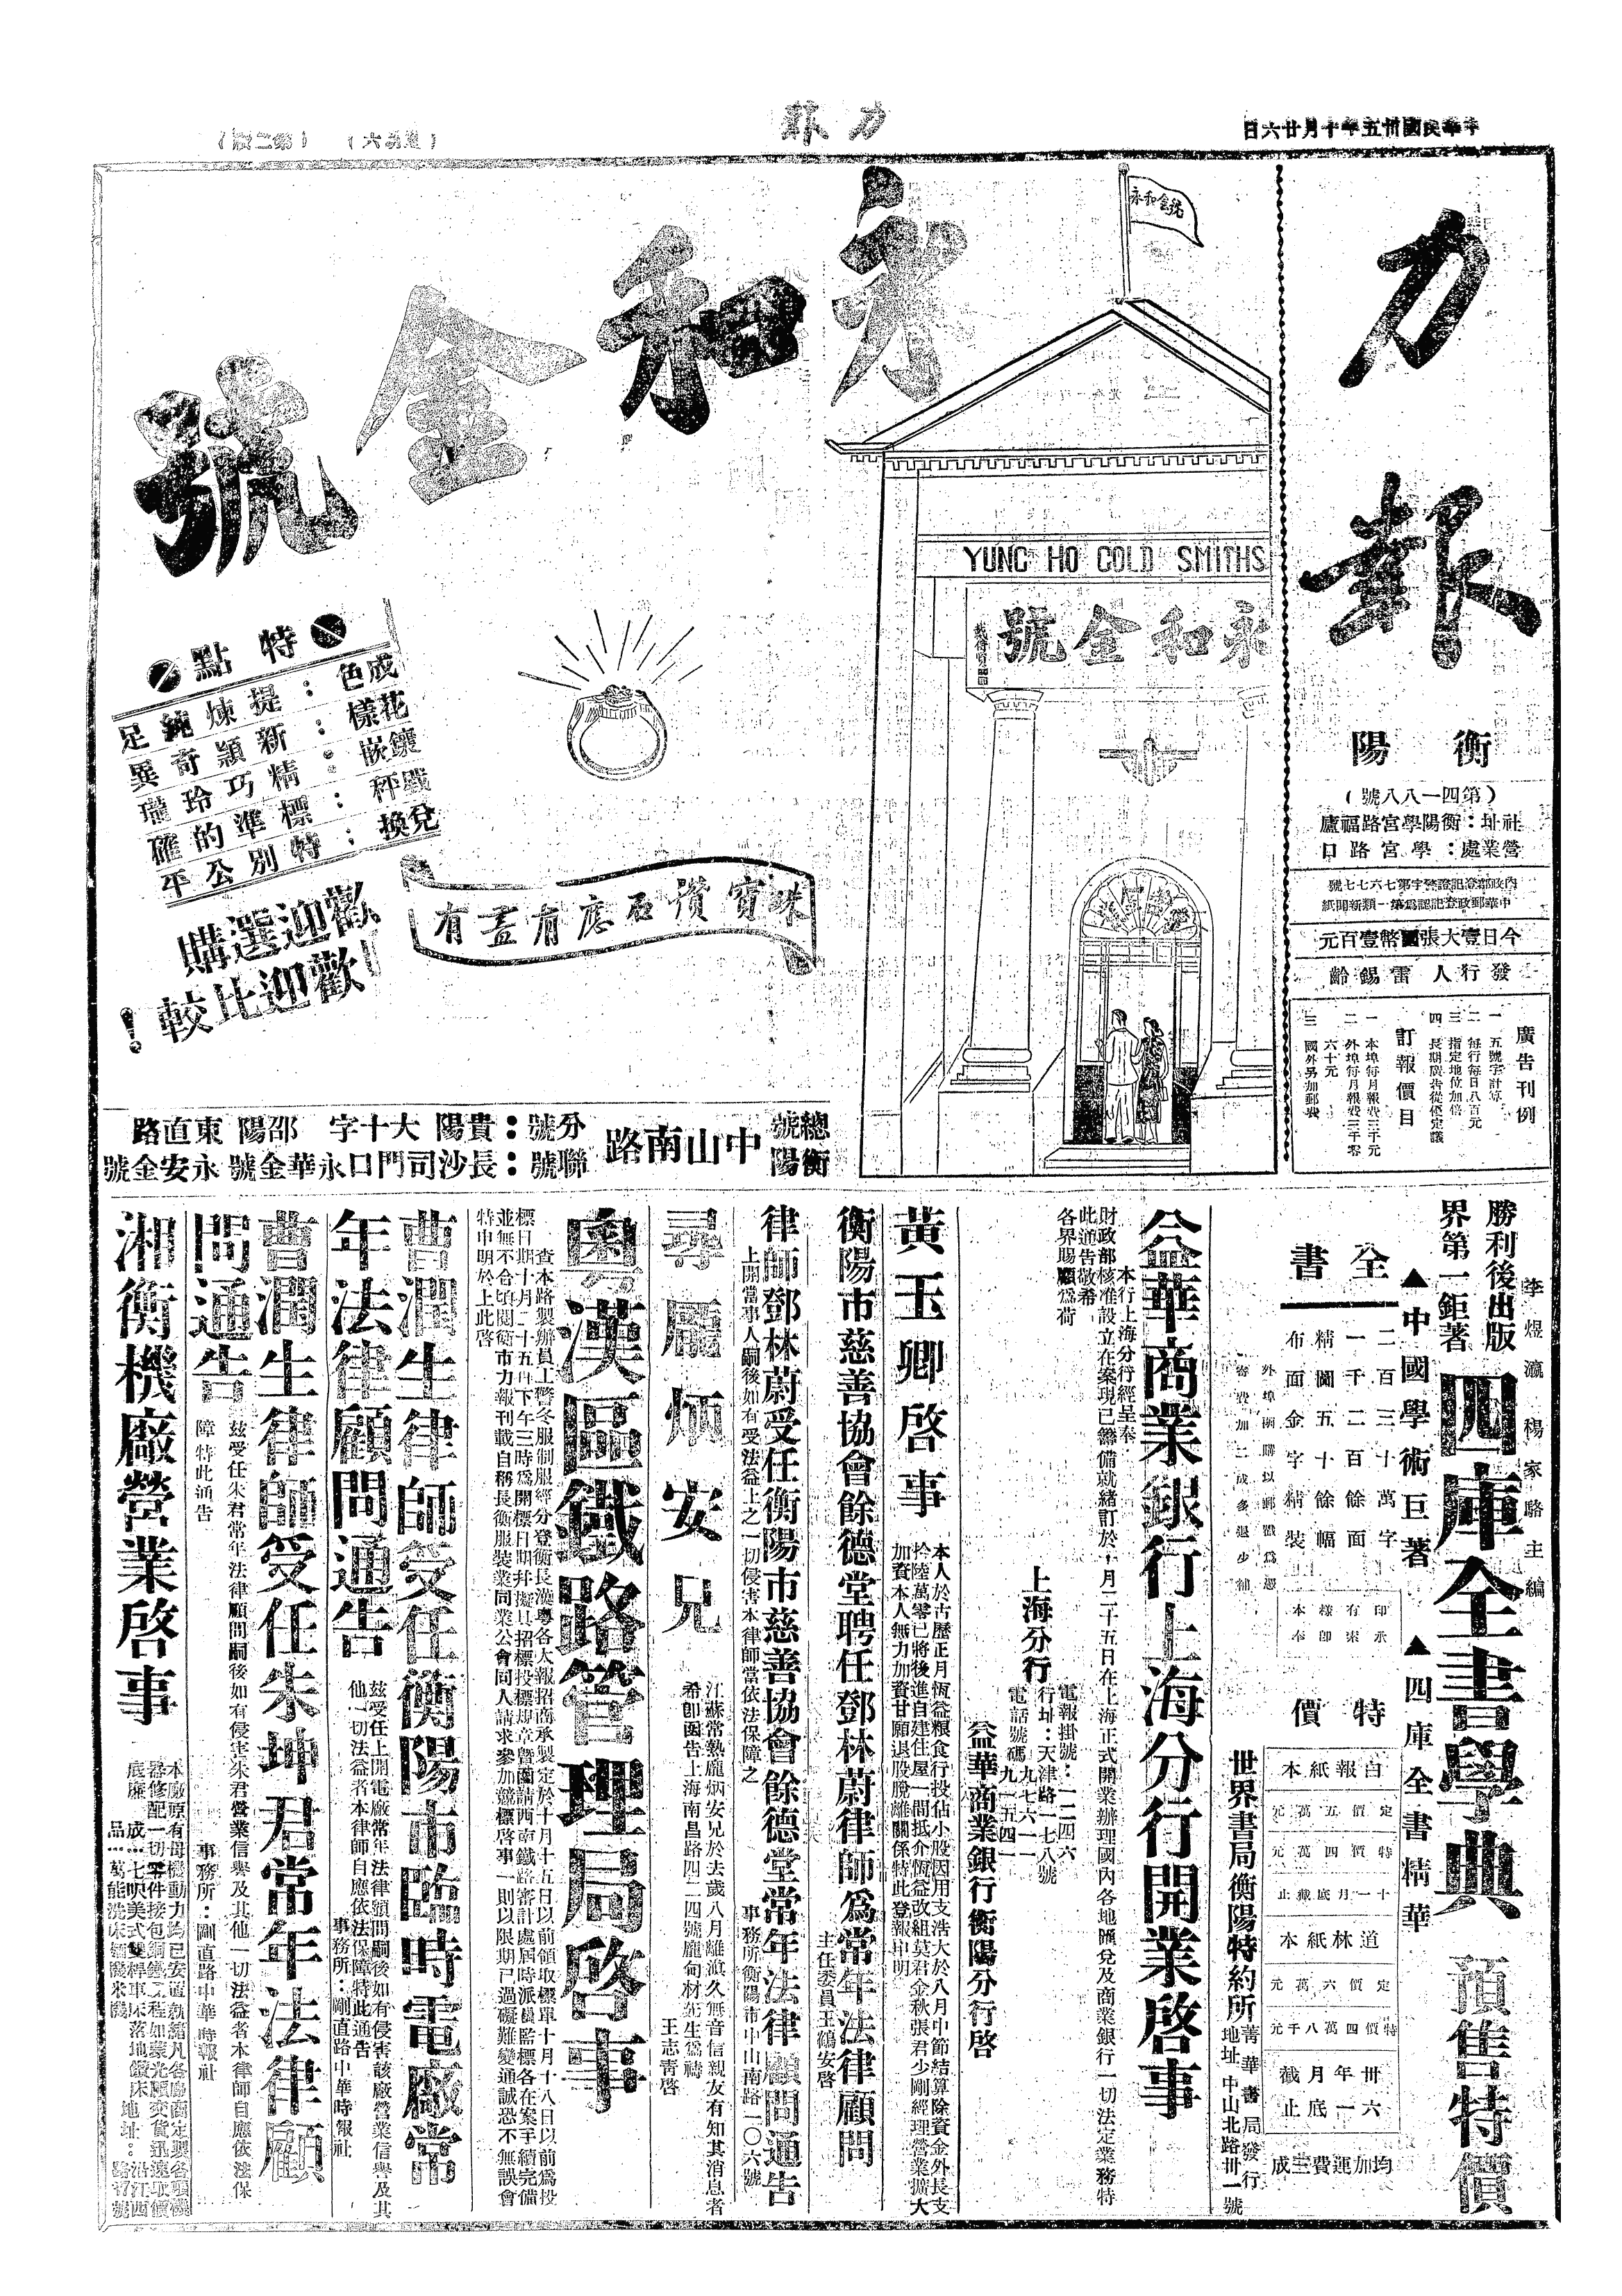 中華民國卅五年十月廿六日
力報
(星期六)
(第二版)
力報
衡陽
(第四一八八號)
社址：衡陽學宮路福廬
營業處：學宮路口
中華郵政登記認爲第一類新聞紙
今日壹大張國幣壹百元
發行人雷錫齡
廣告刊例
一 五號字計算
二 每行每日八百元
三 指定地位加倍
四 長期廣告從優定議
訂報價目
一 本埠每月報費三千元
二 外埠每月報費三千零
六十元
三 國外另加郵費
永和金號
永和金號
YUNG HO GOLD SMITHS
永和金號
●特點●
成色：提煉純足
花樣：新穎奇異
鑲嵌：精巧玲瓏
戥秤：標準的確
兌換：特別公平
歡迎選購
歡迎比較！
珠寶鑽石應有盡有
總號衡陽
中山南路
分號：貴陽大十字 邵陽東直路
聯號：長沙司門口永華金號 永安金號
李煜瀛 楊家駱主編
勝利後出版
界第一鉅著
四庫全書學典
預售特價
▲中國學術巨著
▲四庫全書精華
全書
二百三十萬字
一千二百餘面
精圖五十餘幅
布面金字精裝
外埠函購以郵戳爲憑
寄費加二成多退少補
印有樣本
承索即奉
特價
白報紙本
定價五萬元
特價四萬元
十一月底截止
道林紙本
定價六萬元
特價四萬八千元
卅六年一月底截止
均加運費三成
世界書局衡陽特約所
菁華書局發行
地址中山北路卅一號
益華商業銀行上海分行開業啓事
本行上海分行經呈奉
財政部核准設立在案現已籌備就緒訂於十月二十五日在上海正式開業辦理國內各地匯兌及商業銀行一切法定業務特
此通告敬希
各界賜顧爲荷
上海分行
電報掛號：一二四六
行址：天津路一七八號
電話號碼 九七六一一
九一五四一
益華商業銀行衡陽分行啓
黃玉卿啓事
本人於古歷正月恆益粮食行投佔小股因用支浩大於八月中節結算除資金外長支
拾陸萬零已將後進自建住屋一間抵介恆益改組莫君金秋張君少剛經理營業擴大
加資本人無力加資甘願退股脫離關係特此登報申明
衡陽市慈善協會餘德堂聘任鄧林蔚律師爲常年法律顧問
主任委員王鶴安啓
律師鄧林蔚受任衡陽市慈善協會餘德堂常年法律顧問通告
上開當事人嗣後如有受法益上之一切侵害本律師當依法保障之
事務所衡陽市中山南路一〇六號
尋龐炳安兄
江蘇常熟龐炳安兄於去歲八月離滇久無音信親友有知其消息者
希卽函告上海南昌路四二四號龐甸材先生爲禱
王志靑啓
粵漢區鐵路管理局啓事
查本路製辦員工警冬服制服經分登衡長漢粵各大報招商承製定於十月十五日以前領取標單十月十八日以前爲投
標日期十月二十五日下午三時爲開標日期幷擬具招標投標規章曁圖請西南鐵路審計處屆時派員監標各在案手續完備
並無不合頃閱衡市力報刊載自稱長衡服裝業同業公會同人請求參加競標啓事一則以限期已過礙難變通誠恐不無誤會
特申明於上此啓
曹潤生律師受任衡陽市臨時電廠常
年法律顧問通告
玆受任上開電廠常年法律顧問嗣後如有侵害該廠營業信譽及其
他一切法益者本律師自應依法保障特此通告
事務所：剛直路中華時報社
曹潤生律師受任朱坤君常年法律顧
問通告
玆受任朱君常年法律顧問嗣後如有侵害朱君營業信譽及其他一切法益者本律師自應依法保
障特此通告
事務所：剛直路中華時報社
湘衡機廠營業啓事